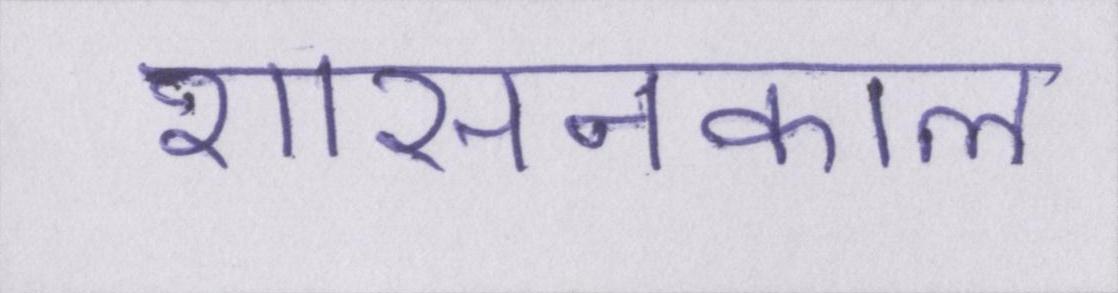 शासनकाल